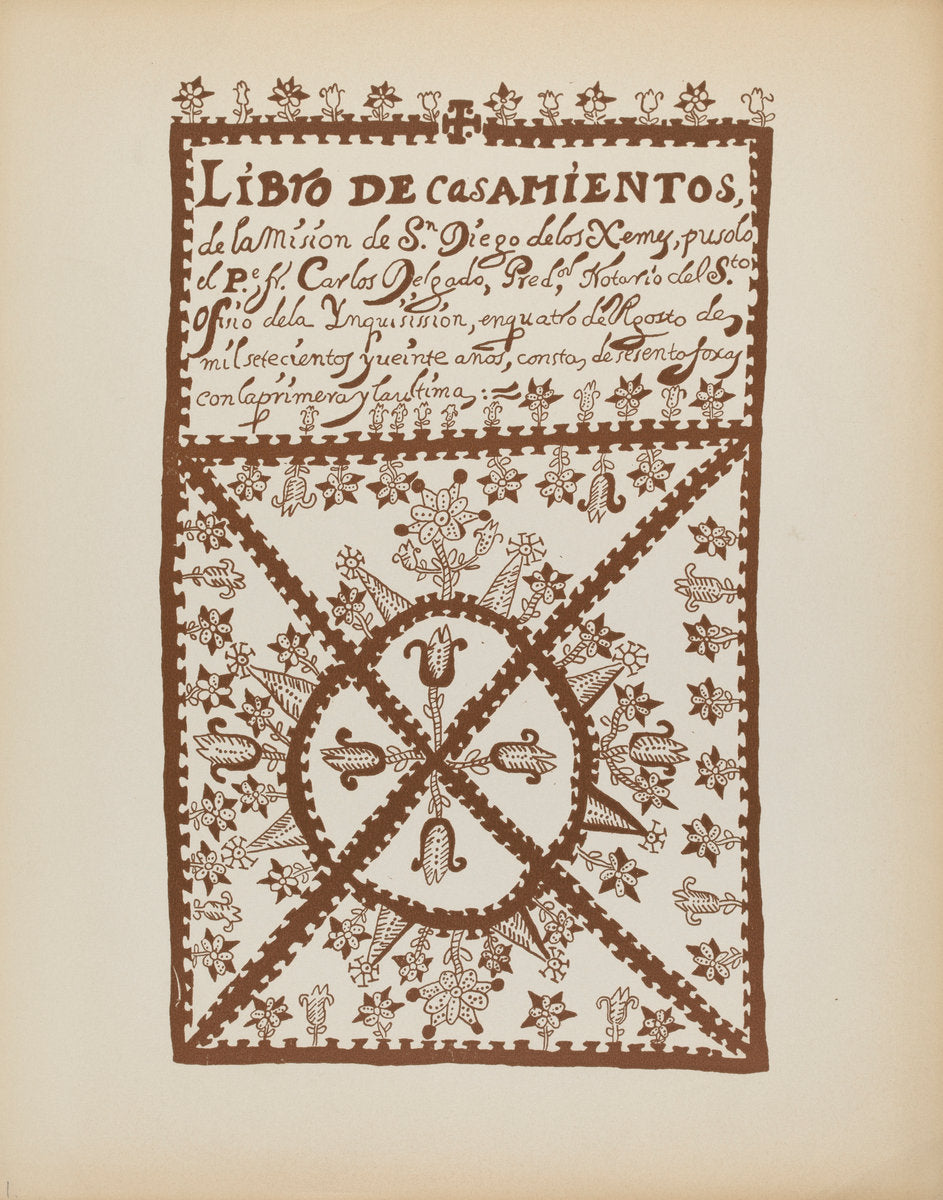 Libro DE CasAMIENTOS,
de la Mision de S.n Diego delos Xemes, pusolo
el P.e fr. Carlos Delgado, Pred.or Notario del S.to
Ofisio dela Ynquisission, enquatro de Agosto de
mil setecientos y ueinte años, consta, de sesenta foxas
con la primera y laultima,